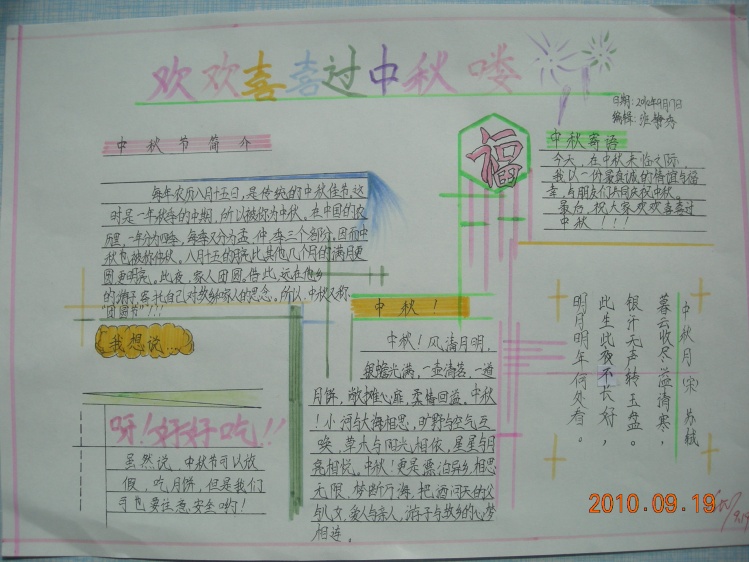 欢欢喜喜过中秋喽
日期:2010年9月17日
编辑:
中秋节简介
每年农历八月十五日,是传统的中秋佳节。这
时是一年秋季的中期,所以被称为中秋。在中国的农
历里,一年分为四季,每季又分为孟、仲、季三个部分,因而中
秋也被称仲秋。八月十五的月亮比其他几个月的满月更
圆,更明亮。此夜,家人团圆。借此,远在他乡
的游子,寄托自己对故乡家人的思念。所以,中秋又称
"团圆节"!?!
福
中秋寄语
今天,在中秋来临之际,
我以一份最真诚的情谊与福
幸,与朋友们共同庆祝中秋。
最后,祝大家欢欢喜喜过
中秋!!!
我想说...
呀!好好吃!!
虽然说,中秋节可以放
假,吃月饼,但是我们
可也要注意安全哟!
中秋!
中秋!风清月明,
银蟾光满,一壶清茗,一道
月饼,散摊心庭,柔情回溢。中秋
!小河与大海相思,旷野与空气互
唤,草木与阳光相依,星星与月
亮相悦。中秋!更是漂泊异乡,相思
无限,梦断乃海,把酒问天的父
与儿女,爱人与亲人,游子与故乡的心梦
相连。
中秋月 宋 苏轼
暮云收尽溢清寒,
银汗无声转玉盘。
此生此夜不长好,
明月明年何处看。
2010.09.19
9.19